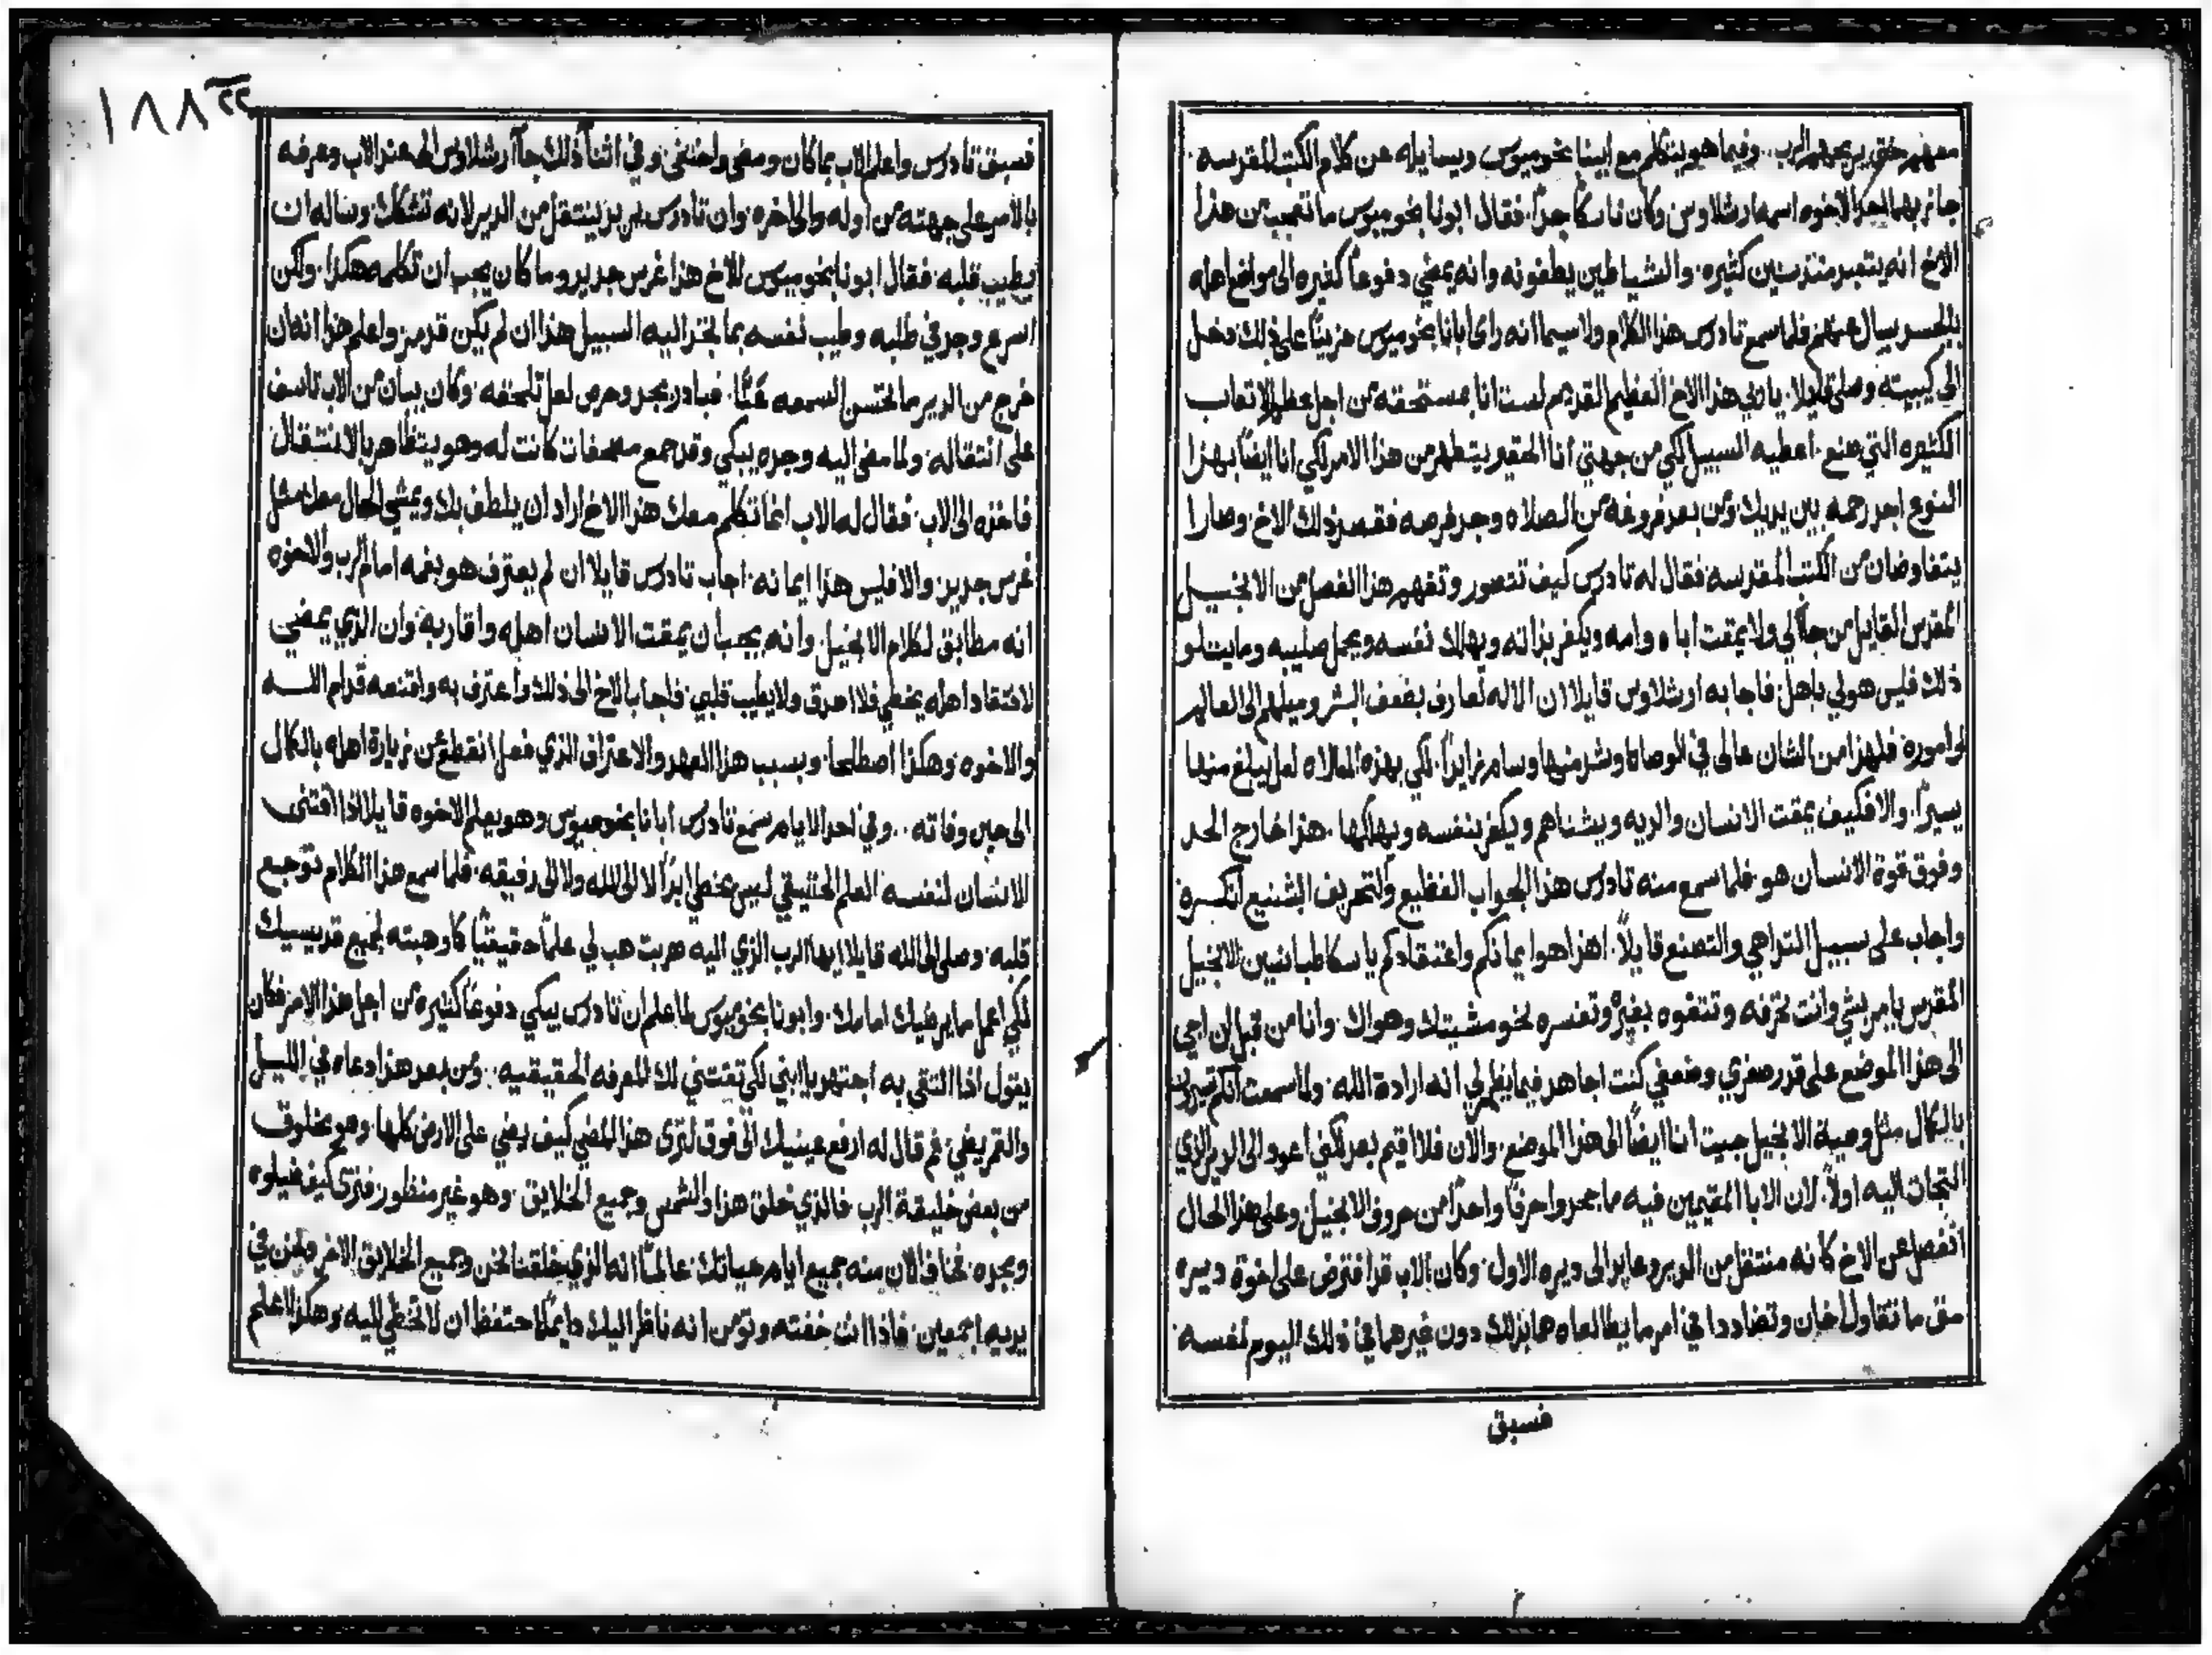 معهم حتى يريحهم الرب. وفيما هو يتكلم مع ابينا بخوميوس ويسايله عن كلام الكتب المقدسه
جاز بهما احد الاخوه اسمه ارشلاوس وكان ناسكا جدا. فقال ابونا بخوميوس ما تعجبت من هذا
الاخ انه يتعب منذ سنين كثيره. والشياطين يطغونه وانه يمضي دفوعا كثيره الى مواضع اهله
بالجسد يسال عنهم فلما سمع تادرس هذا الكلام ولاسيما انه راى ابانا بخوميوس حزينا على ذلك دخل
الى كيبيته وصلى قايلا. يا ربي هذا الاخ العظيم القديم لست انا مستحقته من اجل عظم الاتعاب
الكثيره التي صنع. اعطيه السبيل لكي من جهتي انا الحقير يتطهر من هذا الامر لكي انا ايضا بهذا
النوع اجد رحمه بين يديك ومن بعد فروغه من الصلاه وجد فرصه فقصد ذلك الاخ. وصارا
يتفاوضان من الكتب المقدسه فقال له تادرس كيف تتصور وتفهم هذا الفصل من الانجيل
المقدس القايل من جا الي ولا يمقت اباه وامه ويكفر بذاته ويهلك نفسه ويحمل صليبه وما يتلو
ذلك فليس هو لي باهل. فاجابه ارشلاوس قايلا ان الاله لعارف بضعف البشر وميلهم الى العالم
واموره. فلهذا من الشان عالى في الوصاه وشد منها وسام زايدا. لكي بهذه المغالاه لعل يبلغ منها
يسيرا. والا فكيف يمقت الانسان والديه ويشناهم ويكفر بنفسه ويهلكها. هذا خارج الحد
وفوق قوة الانسان هو. فلما سمع منه تادرس هذا الجواب الفظيع والتحريف الشنيع انكسره
واجاب على سبيل التراهي والتصنع قايلا. اهذا هو ايمانكم واعتقادكم يا سكاطبانسين الانجيل
المقدس يامر بشي وانت تحرفه وتتفوه بغيره وتفسره نحو مشيتك وهواك. وانا من قبل ان اجي
الى هذا الموضع على قدر صغري وضعفي كنت اجاهد فيما يظهر لي انه ارادة الله. ولما سمعت انكم تسيرون
بالكمال مثل وصية الانجيل جيت انا ايضا الى هذا الموضع. والان فلا اقيم بعد لكني اعود الى الدير الذي
التجات اليه اولا. لان الابا المقيمين فيه ما جحدوا حرفا واحدا من حروف الانجيل. وعلى هذا الحال
انفصل عن الاخ كانه منتقل من الدير وعايد الى ديره الاول. وكان الاب قد افترض على اخوة ديره
متى ما تقاول اخان وتضاددا في امر ما يطالعاه هما بذلك دون غيرهما في ذلك اليوم نفسه.
فسبق
١٨٨
فسبق تادرس واعلم الاب بما كان ومضى واختفى. وفي اثنا ذلك جا ارشلاوس الى عند الاب وعرفه
بالامر على جهته من اوله والى اخره. وان تادرس يريد ينتقل من الدير لانه تشكك. وساله ان
يطيب قلبه. فقال ابونا بخوميوس للاخ هذا غرس جديد وما كان يجب ان تكلمه هكذا. ولكن
اسرع وجد في طلبه وطيب نفسه بما تجد اليه السبيل هذا ان لم يكن قد مر واعلم هذا انه ان
خرج من الدير ما تحتسن السمعه عنا. فبادر بجد وحرص لعل تلحقه. وكان يبان من الاب تاسف
على انتقاله. ولما مضى اليه وجده يبكي وقد جمع مصحفات كانت له وهو يتظاهر بالانتقال
فاخذه الى الاب. فقال له الاب انما تكلم معك هذا الاخ اراد ان يلطف بك ويمشي الحال معك مثل
غرس جديد. والا فليس هذا ايمانه. اجاب تادرس قايلا ان لم يعترف هو بفمه امام الرب والاخوه
انه مطابق لكلام الانجيل. وانه يجب ان يمقت الانسان اهله واقاربه وان الذي يمضي
لافتقاد اهله يخطي فلا اصدق ولا يطيب قلبي. فاجاب الاخ الى ذلك واعترف به واقنعه قدام الله
والاخوه وهكذا اصطلحا. وبسبب هذا العهد والاعتراف الذي فعل انقطع من زيارة اهله بالكمال
الى حين وفاته.. وفي احد الايام سمع تادرس ابانا بخوميوس وهو يعلم الاخوه قايلا اذا اقتنى
الانسان لنفسه العلم الحقيقي ليس يخطي ابدا لا الى الله ولا الى رفيقه. فلما سمع هذا الكلام توجع
قلبه. وصلى الى الله قايلا ايها الرب الذي اليه هربت هب لي علما حقيقيا كما وهبته لجميع قديسيك
لكي اعمل ما يرضيك امامك. وابونا بخوميوس لما علم ان تادرس يبكي دفوعا كثيره من اجل هذا الامر فكان
يقول اذا التقى به اجتهد يا ابني لكي تقتني لك المعرفه الحقيقيه.. ومن بعد هذا دعاه في الليل
والقمر يضي. ثم قال له ارفع عينيك الى فوق لترى هذا المضي كيف يضي على الارض كلها. وهو مخلوق
من بعض خليقة الرب. فالذي خلق هذا والشمس وجميع الخلايق. وهو غير منظور فترى كيف ضياوه
ومجده. فخاف الان منه جميع ايام حياتك عالما انه الذي خلقنا نحن وجميع الخلايق الاخر ونحن في
يديه اجمعين. فاذا انت خفته وتومن انه ناظر اليك دايما احتفظ ان لا تخطي اليه. وهكذا اعلم